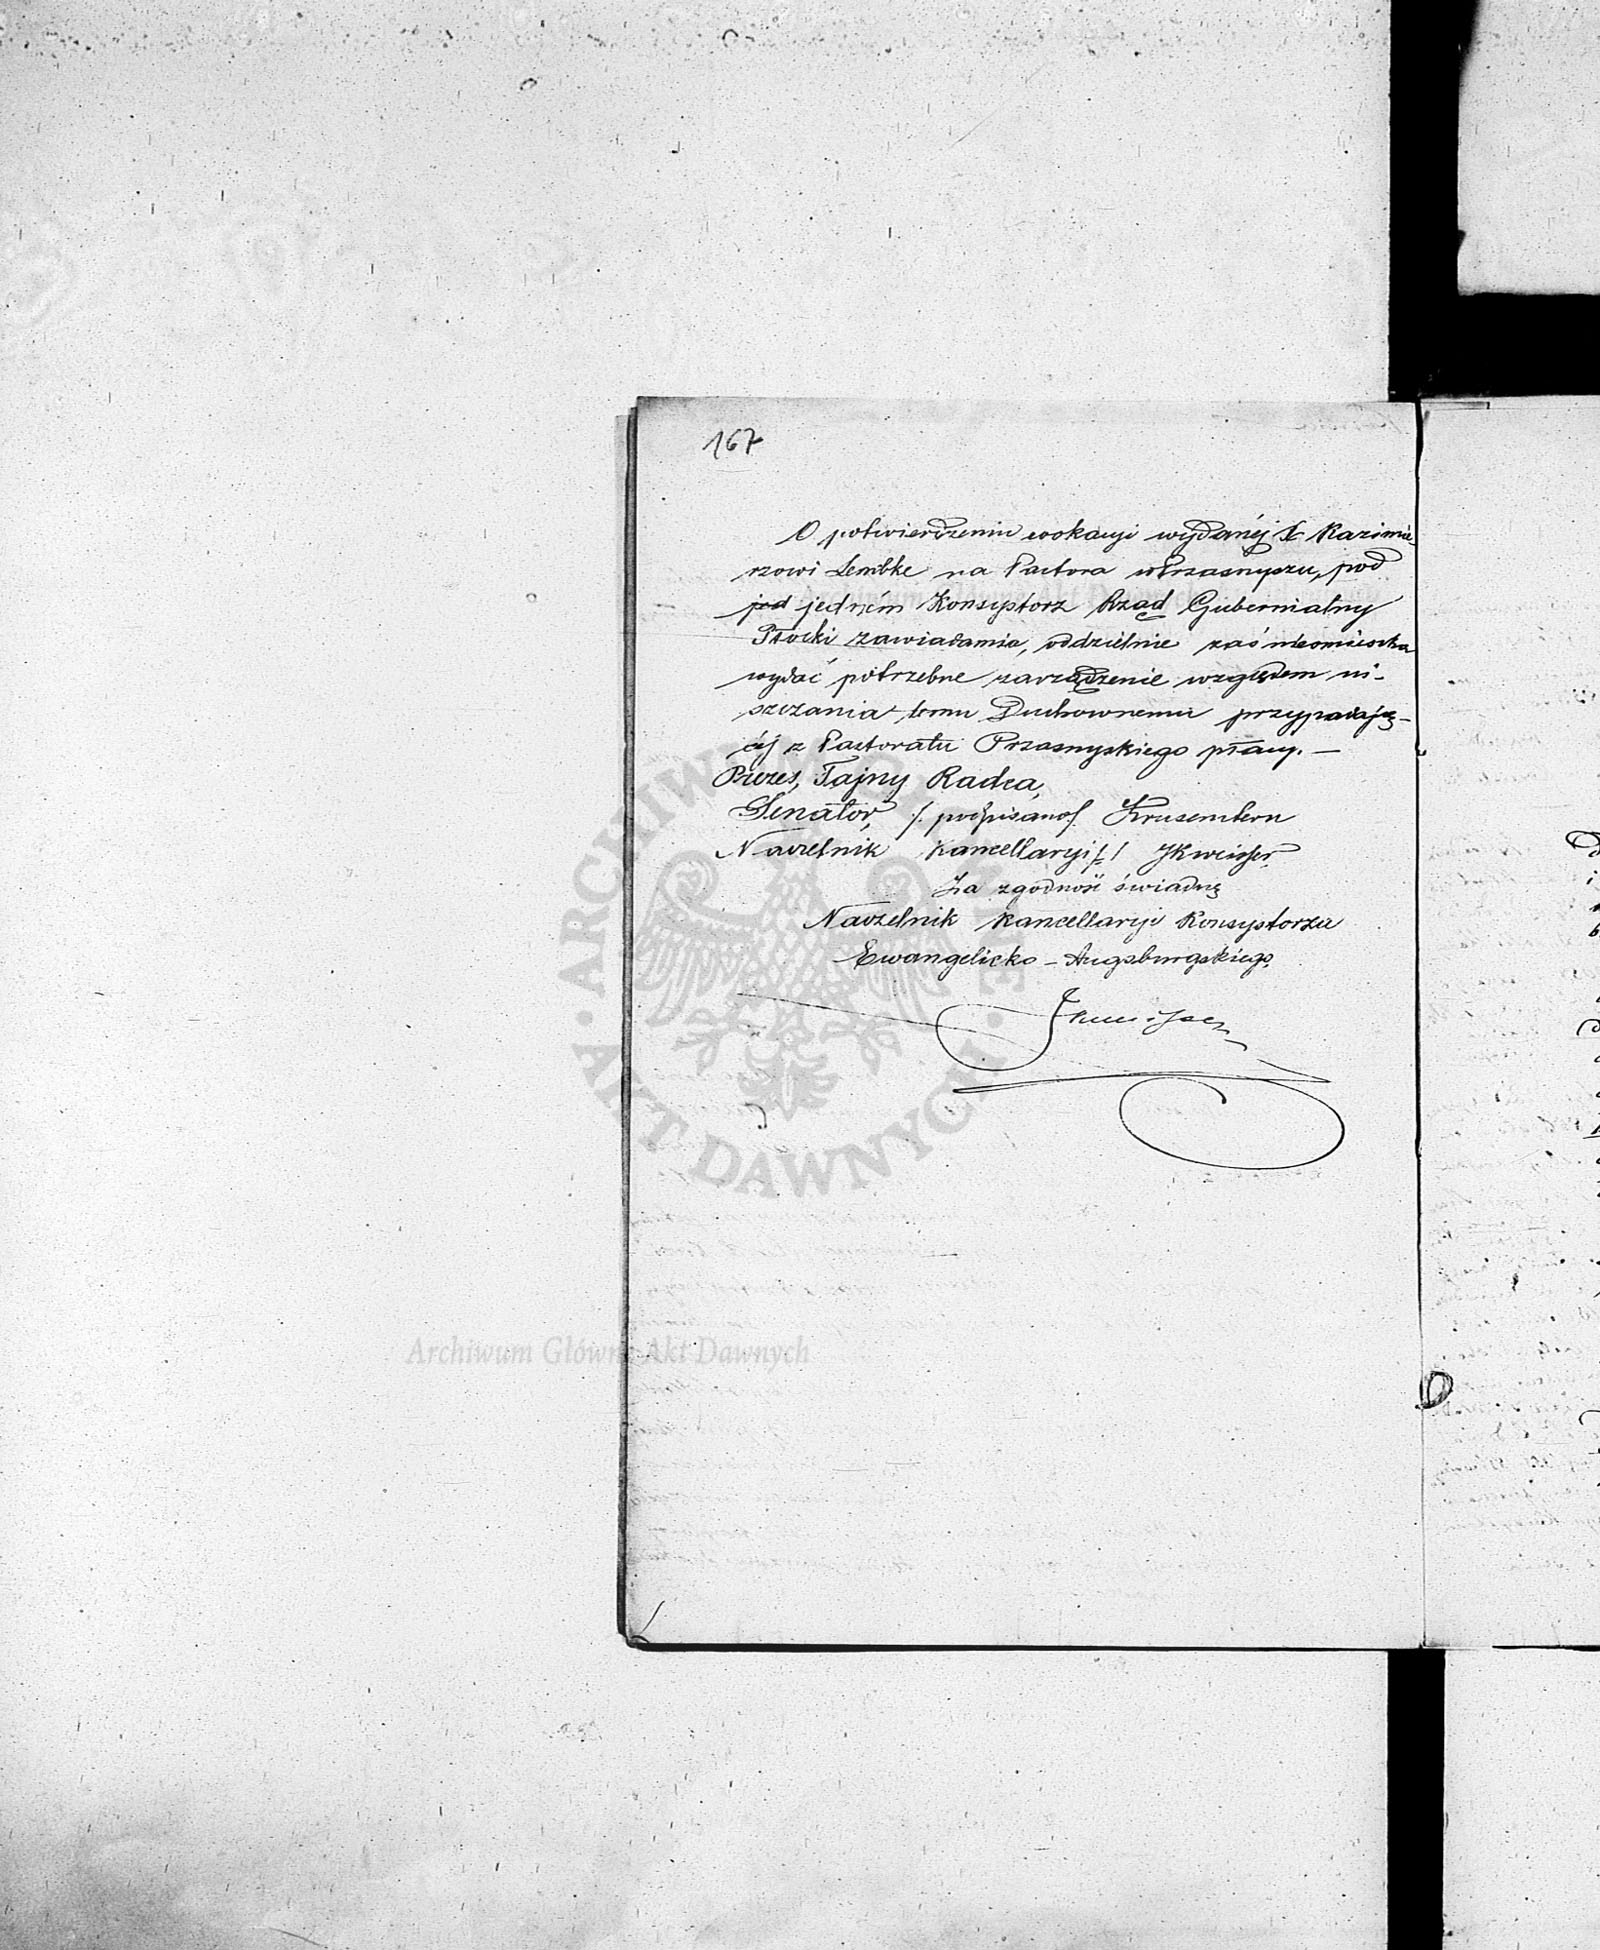 167
O potwierdzeniu wokacyi wydanéj X Kazimie-
rzowi Lembke na Pastora w Przasnyszu, pod
pod jedném Konsystorz Rząd Gubernialny
Płocki zawiadamia, oddzielnie zaś nieomieszka
wydać potrzebne zarządzenie względem ui-
szczania temu Duchownemu przypadają-
céj z Pastoratu Przasnyskiego płacy. —
Prezes, Tajny Radca,
Senator, /. podpisano /. Krusenstern
Naczelnik Kancellaryi /-/
Za zgodność świadczę
Naczelnik Kancellaryi Konsystorza
Ewangelicko – Augsburgskiego.
Archiwum Główne Akt Dawnych
ARCHIWUM GŁÓWNE · AKT DAWNYCH ·